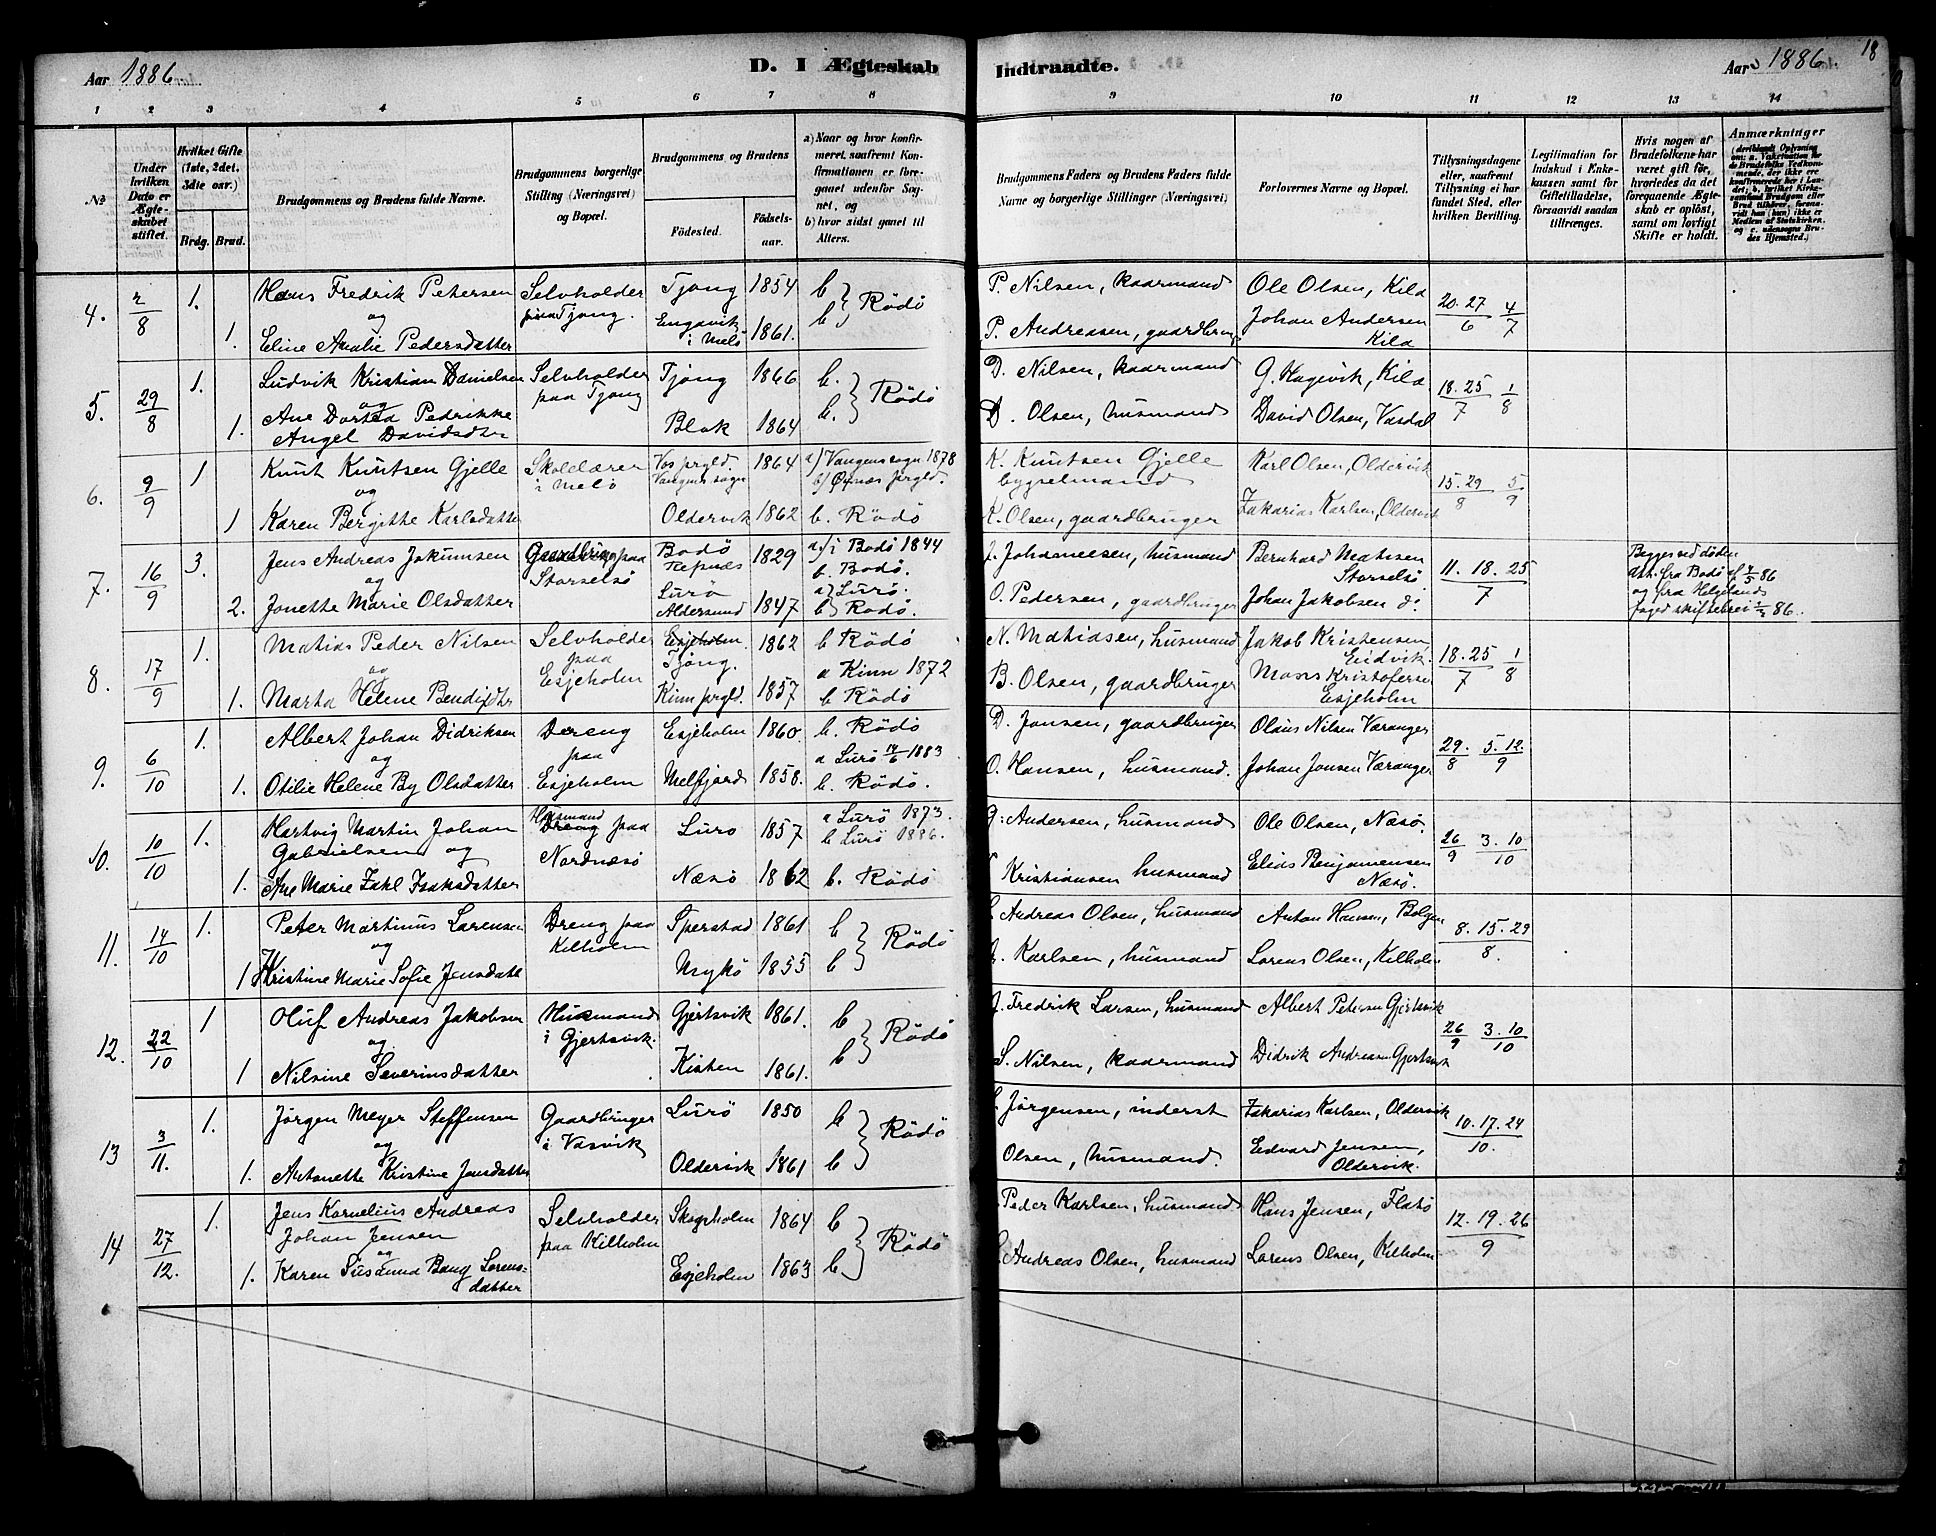 Aar 1886.
D. I Ægteskab Indtraadte.
Aar 1886.
18
1 2 3 4 5 6 7 8 9 10 11 12 13 14
No
Under hvilken Dato er Ægteskabet stiftet.
Hvilket Gifte (1ste, 2det, 3die osv.)
Brdg. Brud.
Brudgommens og Brudens fulde Navne.
Brudgommens borgerlige Stilling (Næringsvei) og Bopæl.
Brudgommens og Brudens
Födested. Födselsaar.
a) Naar og hvor konfirmeret, saafremt Konfirmationen er foregaaet udenfor Sognet, og
b) hvor sidst gaaet til Alters.
Brudgommens Faders og Brudens Faders fulde Navne og borgerlige Stillinger (Næringsvei)
Forlovernes Navne og Bopæl.
Tillysningsdagene eller, saafremt Tillysning ei har fundet Sted, efter hvilken Bevilling.
Legitimation for Indskud i Enkekassen samt for Giftetilladelse, forsaavidt saadan tiltrænges.
Hvis nogen af Brudefolkene har været gift før, hvorledes da det foregaaende Ægteskab er oplöst, samt om lovligt Skifte er holdt.
Anmærkninger
4. 2/8 1. Hans Fredrik Petersen Selvholder paa Tjong. Tjong 1854 b Rödö P. Nilsen, kaarmand Ole Olsen, Kila 20. 27/6 4/7
og
1. Eline Amalie Pedersdatter Engavik i Melö 1861. b P. Andreasen, gaardbrug Johan Andersen Kila
5. 29/8 1. Ludvik Kristian Danielsen Selvholder paa Tjong Tjong 1866 b. Rödö D. Nilsen, kaarmand G. Hagevik, Kila 18. 25/7 1/8
og
1. Ane Dortea Pedrikke Angel Davidsdtr Blok 1864 b. D. Olsen, husmand David Olsen, Vasdal
6. 9/9 1 Knut Knutsen Gjelle Skolelærer i Melö Vos prgld. Vangens sogn 1864 a) Vangens sogn 1878 b) Öynæs prgld. K. Knutsen Gjelle bygselmand Karl Olsen, Oldervik 15. 29/8 5/9
og
1 Karen Bergitte Karlsdatter Oldervik 1862 b. Rödö K. Olsen, gaardbruger Zakarias Karlsen, Oldervik
7. 16/9 3. Jens Andreas Jakumsen Gaardbrug paa Storselsö Bodö 1829 a) i Bodö 1844 b. Bodö. J. Johannesen, husmand Bernhard Mathisen Storselsö 11. 18. 25/7 Begges ved döden
og
2. Jonette Marie Olsdatter Lurö Aldersund 1847 a) Lurö. b) Rödö. O. Pedersen, gaardbruger Johan Jakobsen d. att. fra Bodö af 4/5 86 og fra Helgelands foged skiftebrev 86.
8. 17/9 1. Matias Peder Nilsen Selvholder paa Esjeholm Esjeholm Tjong. 1862 b Rödö N. Matiasen, husmand Jakob Kristensen Eidvik 18. 25/7 1/8
og
1. Marta Helene Bendiksdtr Kinn prgld. 1857 a Kinn 1872 b Rödö B. Olsen, gaardbruger Moses Kristofersen Esjeholm
9. 6/10 1. Albert Johan Didriksen Dreng paa Esjeholm Esjeholm 1860 b. Rödö D. Jonsen, gaardbruger Olaus Nilsen Væranger 29/8 5. 12/9
og
1. Otilie Helene By Olsdatter Melfjord 1858. a Lurö 14/6 1883 b. Rödö. O. Hansen, husmand. Johan Jonsen Væranger
10. 10/10 1. Hartvig Martin Johan Gabrielsen og Husmand Dreng paa Nordnæsö Lurö 1857 a Lurö 1873. b Lurö 1886. G. Andersen, husmand Ole Olsen, Næsö. 26/9 3. 10/10
1. Ane Marie Zahl Isaksdatter Næsö 1862 b. Rödö Kristiansen husmand Elias Benjamensen Næsö.
11. 14/10 1. Peter Martinus Lorensen Dreng paa Kilholm Sperstad 1861 b Rödö Andreas Olsen, husmand Anton Hansen, Bolgen 8. 15. 29/8.
og
1 Kristine Marie Sofie Jensdatt Mykö 1855 b Karlsen, husmand Lorens Olsen, Kilholm
12. 22/10 1 Oluf Andreas Jakobsen Husmand i Gjertsvik. Gjertsvik 1861. b Rödö J. Fredrik Larsen, husmand Albert Petersen Gjertsvik 26/9 3. 10/10
og
1 Nilsine Severinsdatter Kisten 1861. b S. Nilsen, kaarmand Didrik Andreasen Gjertsvik
13 3/11. 1. Jörgen Meyer Steffensen Gaardbruger i Vasvik Lurö 1850 b Rödö Jörgensen, inderst Zakarias Karlsen, Oldervik 10. 17. 24/10.
og
1. Antonette Kristine Jensdatter Oldervik 1861 b Olsen, husmand. Edvard Jensen, Oldervik.
14 27/12. 1. Jens Kornelius Andreas Johan Jensen Selvholder paa Kilholm Skogsholm 1864 b Rödö Peder Karlsen, husmand Hans Jensen, Flatö 12. 19. 26/9
og
1. Karen Susanna Bang Lorensdatter Esjeholm 1863 b Andreas Olsen, husmand Lorens Olsen, Kilholm